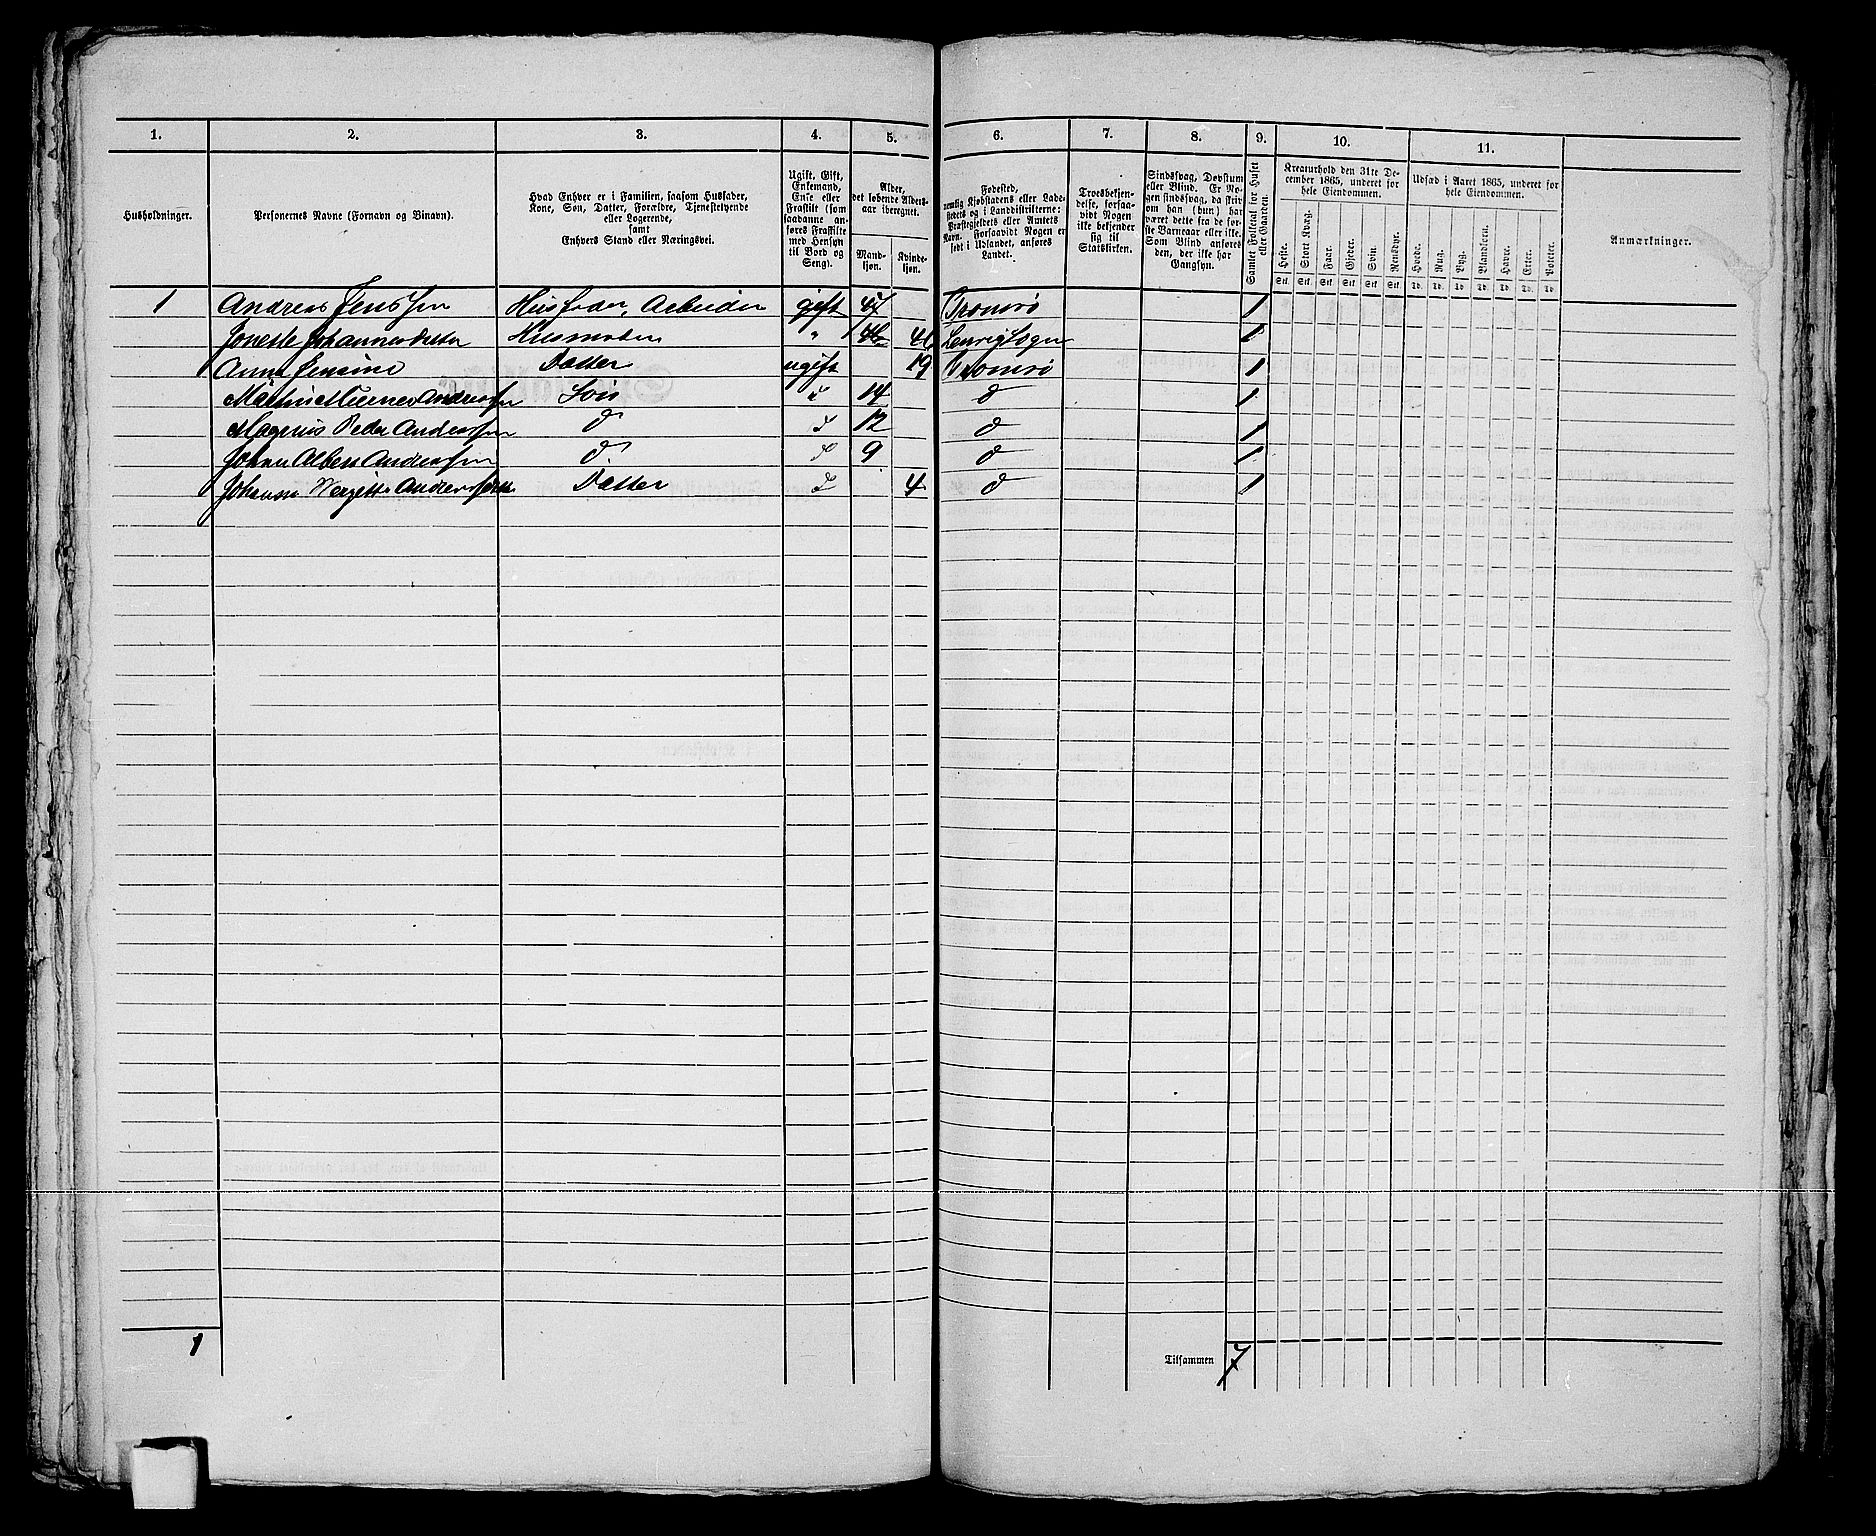 1. 2. 3. 4. 5. 6. 7. 8. 9. 10. 11.
Husholdninger.
Personernes Navne (Fornavn og Binavn).
Hvad Enhver er i Familien, saasom Husfader,
Kone, Søn, Datter, Forældre, Tjenestetyende
eller Logerende,
samt
Enhvers Stand eller Næringsvei.
Ugift, Gift,
Enkemand,
Enke eller
Fraskilt (som
saadanne an-
føres Fraskilte
med Hensyn
til Bord og
Seng).
Alder,
det løbende Alders-
aar iberegnet.
Mand-
kjøn.
Kvinde-
kjøn.
Fødested,
nemlig Kjøbstadens eller Lade-
stedets og i Landdistrikterne:
Præstegjeldets eller Amtets
Navn. Forsaavidt Nogen er
født i Udlandet, anføres
Landet.
Troesbekjen-
delse, forsaa-
vidt Nogen
ikke bekjender
sig til
Statskirken.
Sindssvag, Døvstum
eller Blind. Er No-
gen sindssvag, da skriv
om han (hun) har
været dette fra de før-
ste Barneaar eller ikke.
Som Blind anføres
den, der ikke har
Gangsyn.
Samlet Folketal for Huset
eller Gaarden.
Kreaturhold den 31te De-
cember 1865, underet for
hele Eiendommen.
Heste. Stort Kvæg. Faar. Gjeder. Svin. Rensdyr.
Stk. Stk. Stk. Stk. Stk. Stk.
Udsæd i Aaret 1865, underet for
hele Eiendommen.
Hvede. Rug. Byg. Blandkorn. Havre. Erter. Poteter.
Td. Td. Td. Td. Td. Td. Td.
Anmærkninger.
1 Andreas Jenssen Husfader, Arbeider gift 47 Tromsø 1
Husmoder " 1
Anna Jensine Datter ugift 19 Tromsø 1
Andreassen Søn " 14 d 1
Magnus Peder Andreassen d d 12 d 1
Johan Albert Andreassen d. d 9 d 1
Johanna Andreasdatter Datter d 4 d 1
1 Tilsammen 7